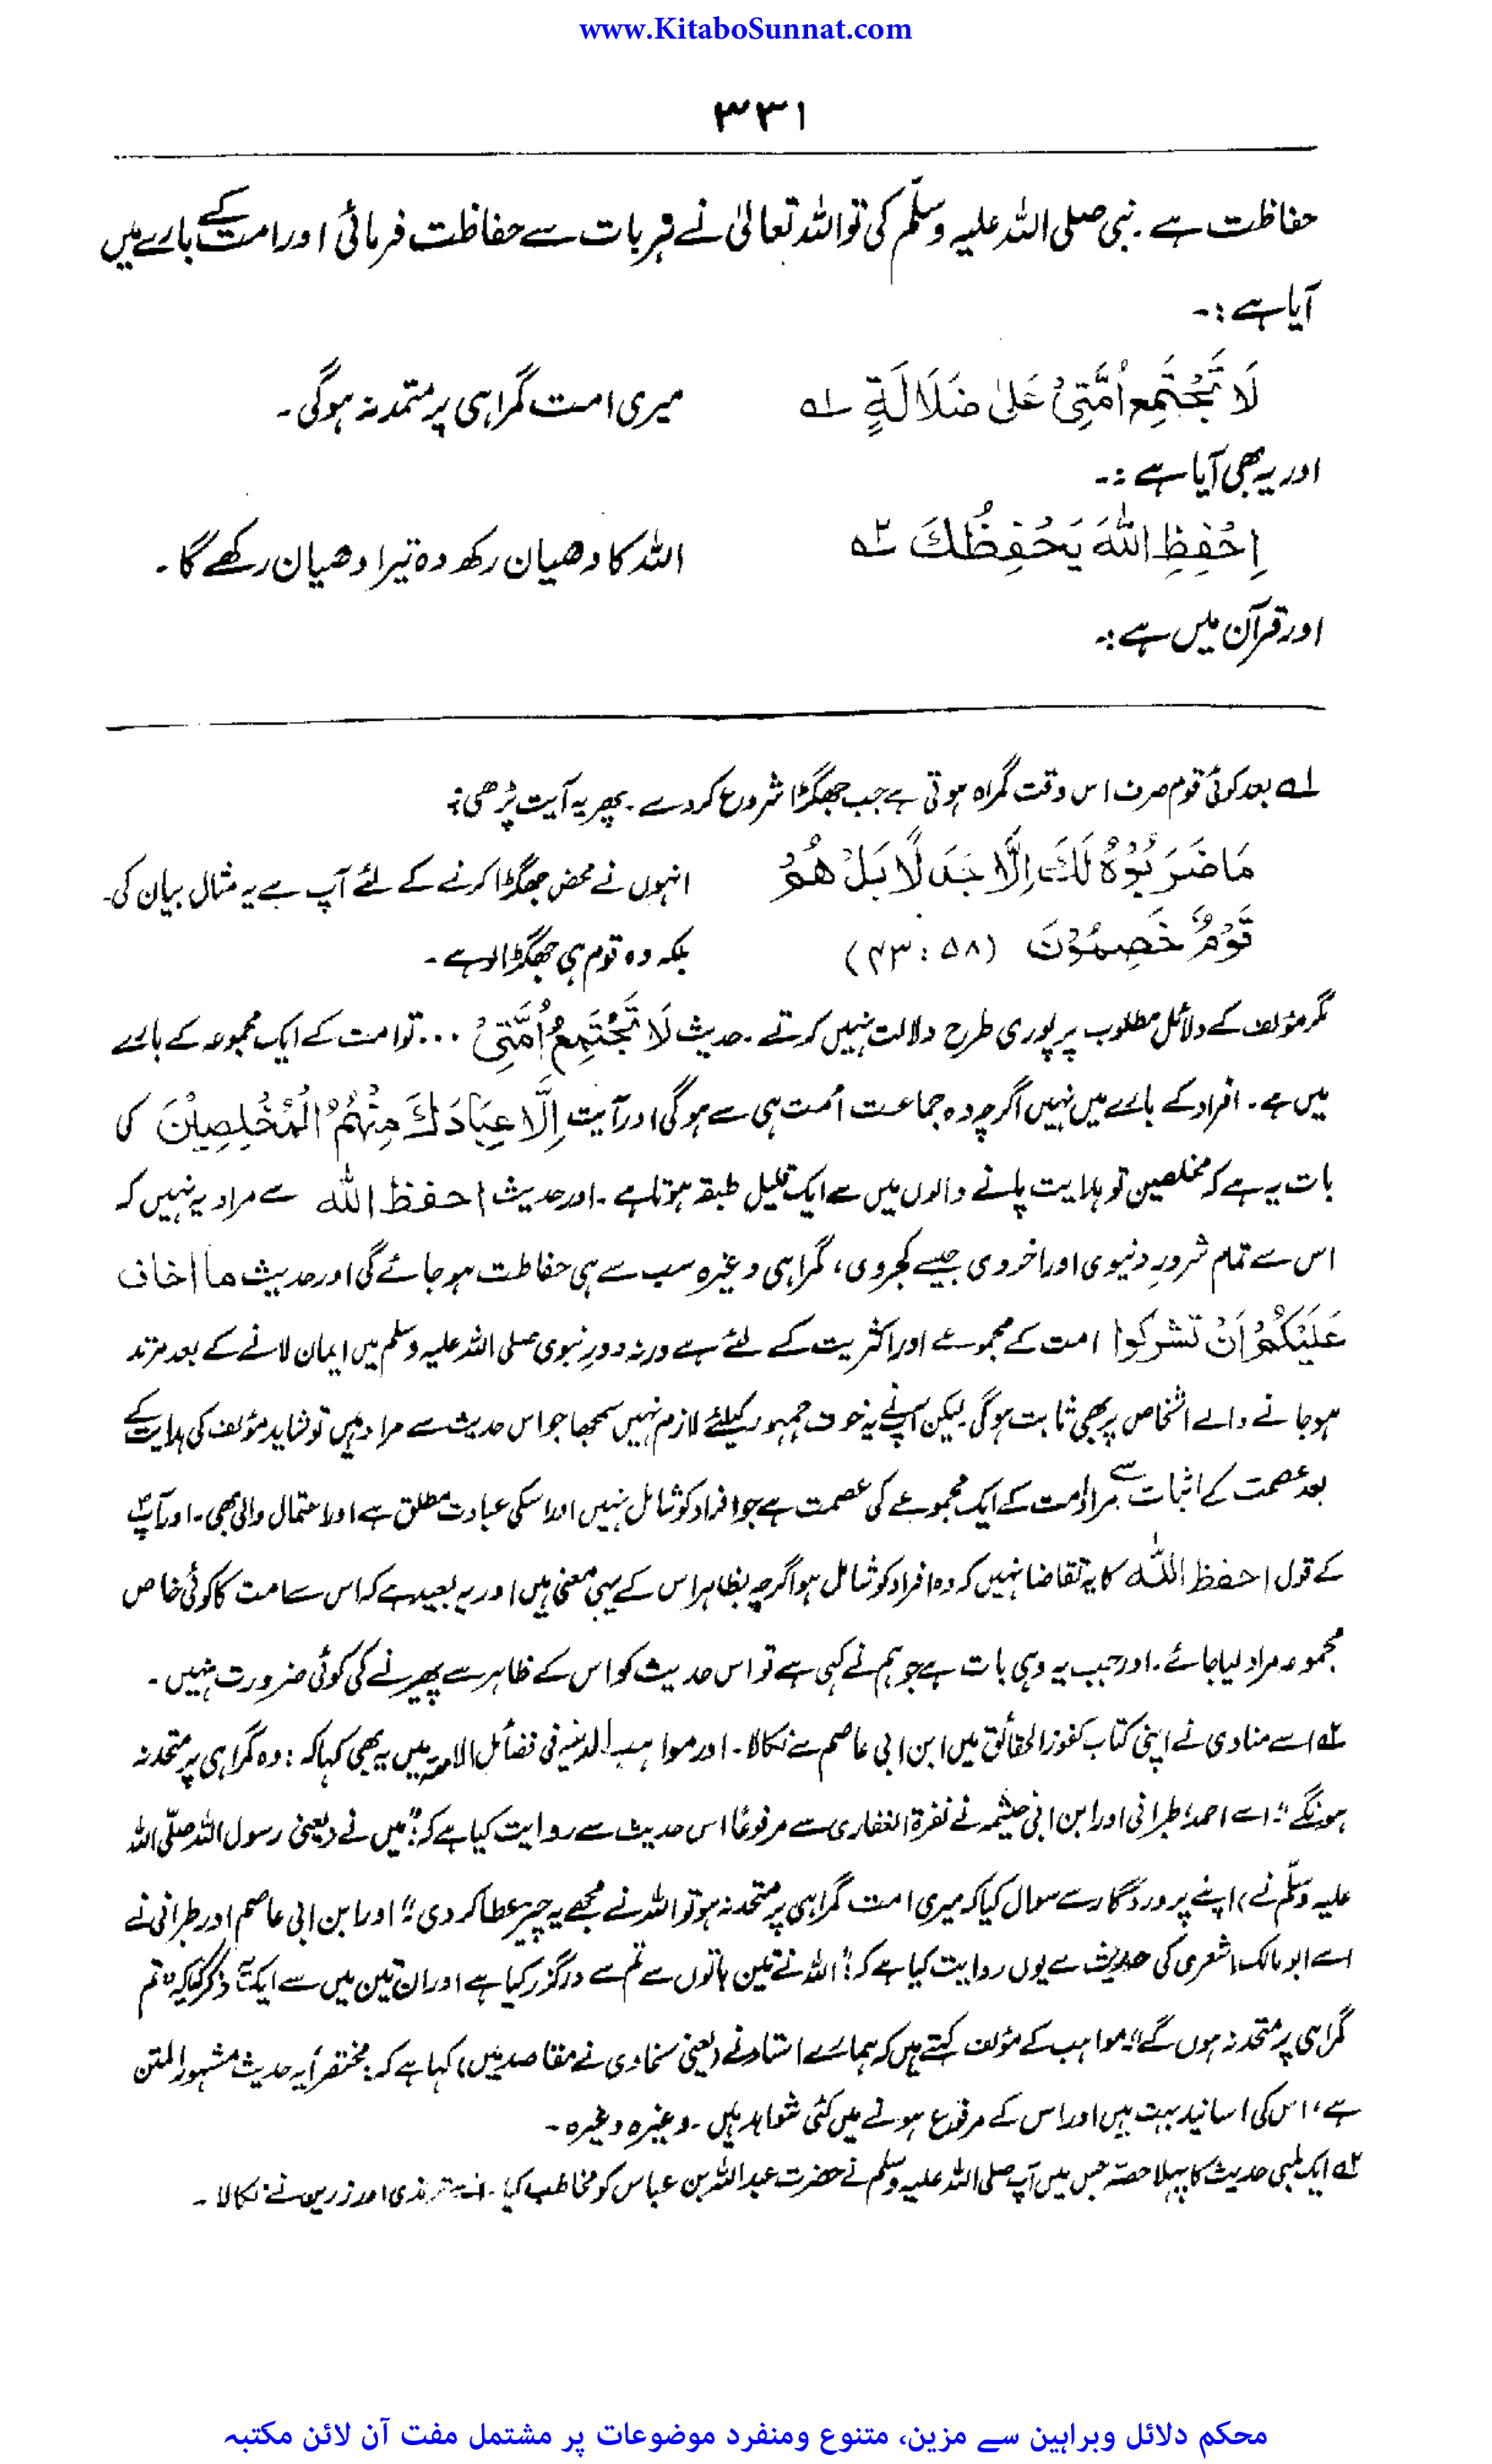 www.KitaboSunnat.com
۳۳۱
حفاظت ہے ۔ نبی صلی اللہ علیہ وسلّم کی تو اللہ تعالیٰ نے قربات سے حفاظت فرمائی اور امت کے بارے میں
آیا ہے :۔
لَا تَجْتَمِعُ اُمَّتِیْ عَلیٰ ضَلَالَةٍ ؎۱ میری امت گمراہی پر متحد نہ ہوگی ۔
اور یہ بھی آیا ہے :۔
اِحْفِظِ اللّٰہَ یَحْفِظُكَ ؎۲ اللہ کا دھیان رکھ وہ تیرا دھیان رکھے گا ۔
اور قرآن میں ہے :۔
؎۱ بعد کوئی قوم صرف اس وقت گمراہ ہوتی ہے جب جھگڑا شروع کردے ۔ پھر یہ آیت پڑھی :
مَا ضَرَبُوْہُ لَكَ اِلَّا جَدَلًا بَلْ ھُمْ انہوں نے محض جھگڑا کرنے کے لئے آپ سے یہ مثال بیان کی۔
قَوْمٌ خَصِمُوْنَ (۴۳ : ۵۸) بلکہ وہ قوم ہی جھگڑالو ہے ۔
مگر مؤلف کے دلائل مطلوب پر پوری طرح دلالت نہیں کرتے ۔ حدیث لَا تَجْتَمِعُ اُمَّتِیْ ... تو امت کے ایک مجموعہ کے بارے
میں ہے ۔ افراد کے بارے میں نہیں اگرچہ وہ جماعت اُمت ہی سے ہوگی اور آیت اِلَّا عِبَادَكَ مِنْہُمُ الْمُخْلِصِیْنَ کی
بات یہ ہے کہ مخلصین تو ہدایت پانے والوں میں سے ایک قلیل طبقہ ہوتا ہے ۔ اور حدیث احفظ اللہ سے مراد یہ نہیں کہ
اس سے تمام شرورِ دنیوی اور اخروی جیسے کجروی، گمراہی وغیرہ سب سے ہی حفاظت ہو جائے گی اور حدیث ما اخاف
عَلَیْکُمْ اَنْ تشرکوا امت کے مجموعے اور اکثریت کے لئے ہے ورنہ دورِ نبوی صلی اللہ علیہ وسلم میں ایمان لانے کے بعد مرتد
ہوجانے والے اشخاص پر بھی ثابت ہوگی لیکن آپنے یہ خوف جمہور کیلئے لازم نہیں سمجھا جو اس حدیث سے مراد ہیں تو شاید مؤلف کی ہدایت کے
بعد عصمت کے اثبات سے مراد امت کے ایک مجموعے کی عصمت ہے جو افراد کو شامل نہیں اور اسکی عبادت مطلق ہے اور احتمال والی بھی ۔ اور آپؐ
کے قول احفظ اللہ کا یہ تقاضا نہیں کہ وہ افراد کو شامل ہو اگرچہ بظاہر اس کے یہی معنی ہیں اور یہ بعید ہے کہ اس سے امت کا کوئی خاص
مجموعہ مراد لیا جائے ۔ اور جب یہ وہی بات ہے جو ہم نے کہی ہے تو اس حدیث کو اس کے ظاہر سے پھیرنے کی کوئی ضرورت نہیں ۔
اسے مناوی نے اپنی کتاب کنوز الحقائق میں ابن ابی عاصم سے نکالا ۔ اور مواہب الدنیہ فی فضائل الامہ میں یہ بھی کہا کہ : وہ گمراہی پر متحد نہ
ہونگے“ اسے احمد، طبرانی اور ابن ابی خیثمہ نے نضرۃ الغفاری سے مرفوعاً اس حدیث سے روایت کیا ہے کہ : ”میں نے (یعنی رسول اللہ صلّی اللہ
علیہ وسلّم نے) اپنے پروردگار سے سوال کیا کہ میری امت گمراہی پر متحد نہ ہو تو اللہ نے مجھے یہ چیز عطا کردی“ اور ابن ابی عاصم اور طبرانی نے
اسے ابو مالک اشعری کی حدیث سے یوں روایت کیا ہے کہ : ”اللہ نے تین باتوں سے تم سے درگزر کیا ہے اور ان تین میں سے ایک ذکر کیا کہ تم
گمراہی پر متحد نہ ہوں گے“ مواہب کے مؤلف کہتے ہیں کہ ہمارے استاد نے (یعنی سخاوی نے مقاصد میں) کہا ہے کہ : مختصراً یہ حدیث مشہور المتن
ہے، اس کی اسانید بہت ہیں اور اس کے مرفوع ہونے میں کئی شواہد ہیں ۔ وغیرہ وغیرہ ۔
؎۲ ایک لمبی حدیث کا پہلا حصّہ جس میں آپ صلی اللہ علیہ وسلم نے حضرت عبد اللہ بن عباس کو مخاطب کیا ۔ اسے ترمذی اور زرین نے نکالا ۔
محکم دلائل وبراہین سے مزین، متنوع ومنفرد موضوعات پر مشتمل مفت آن لائن مکتبہ